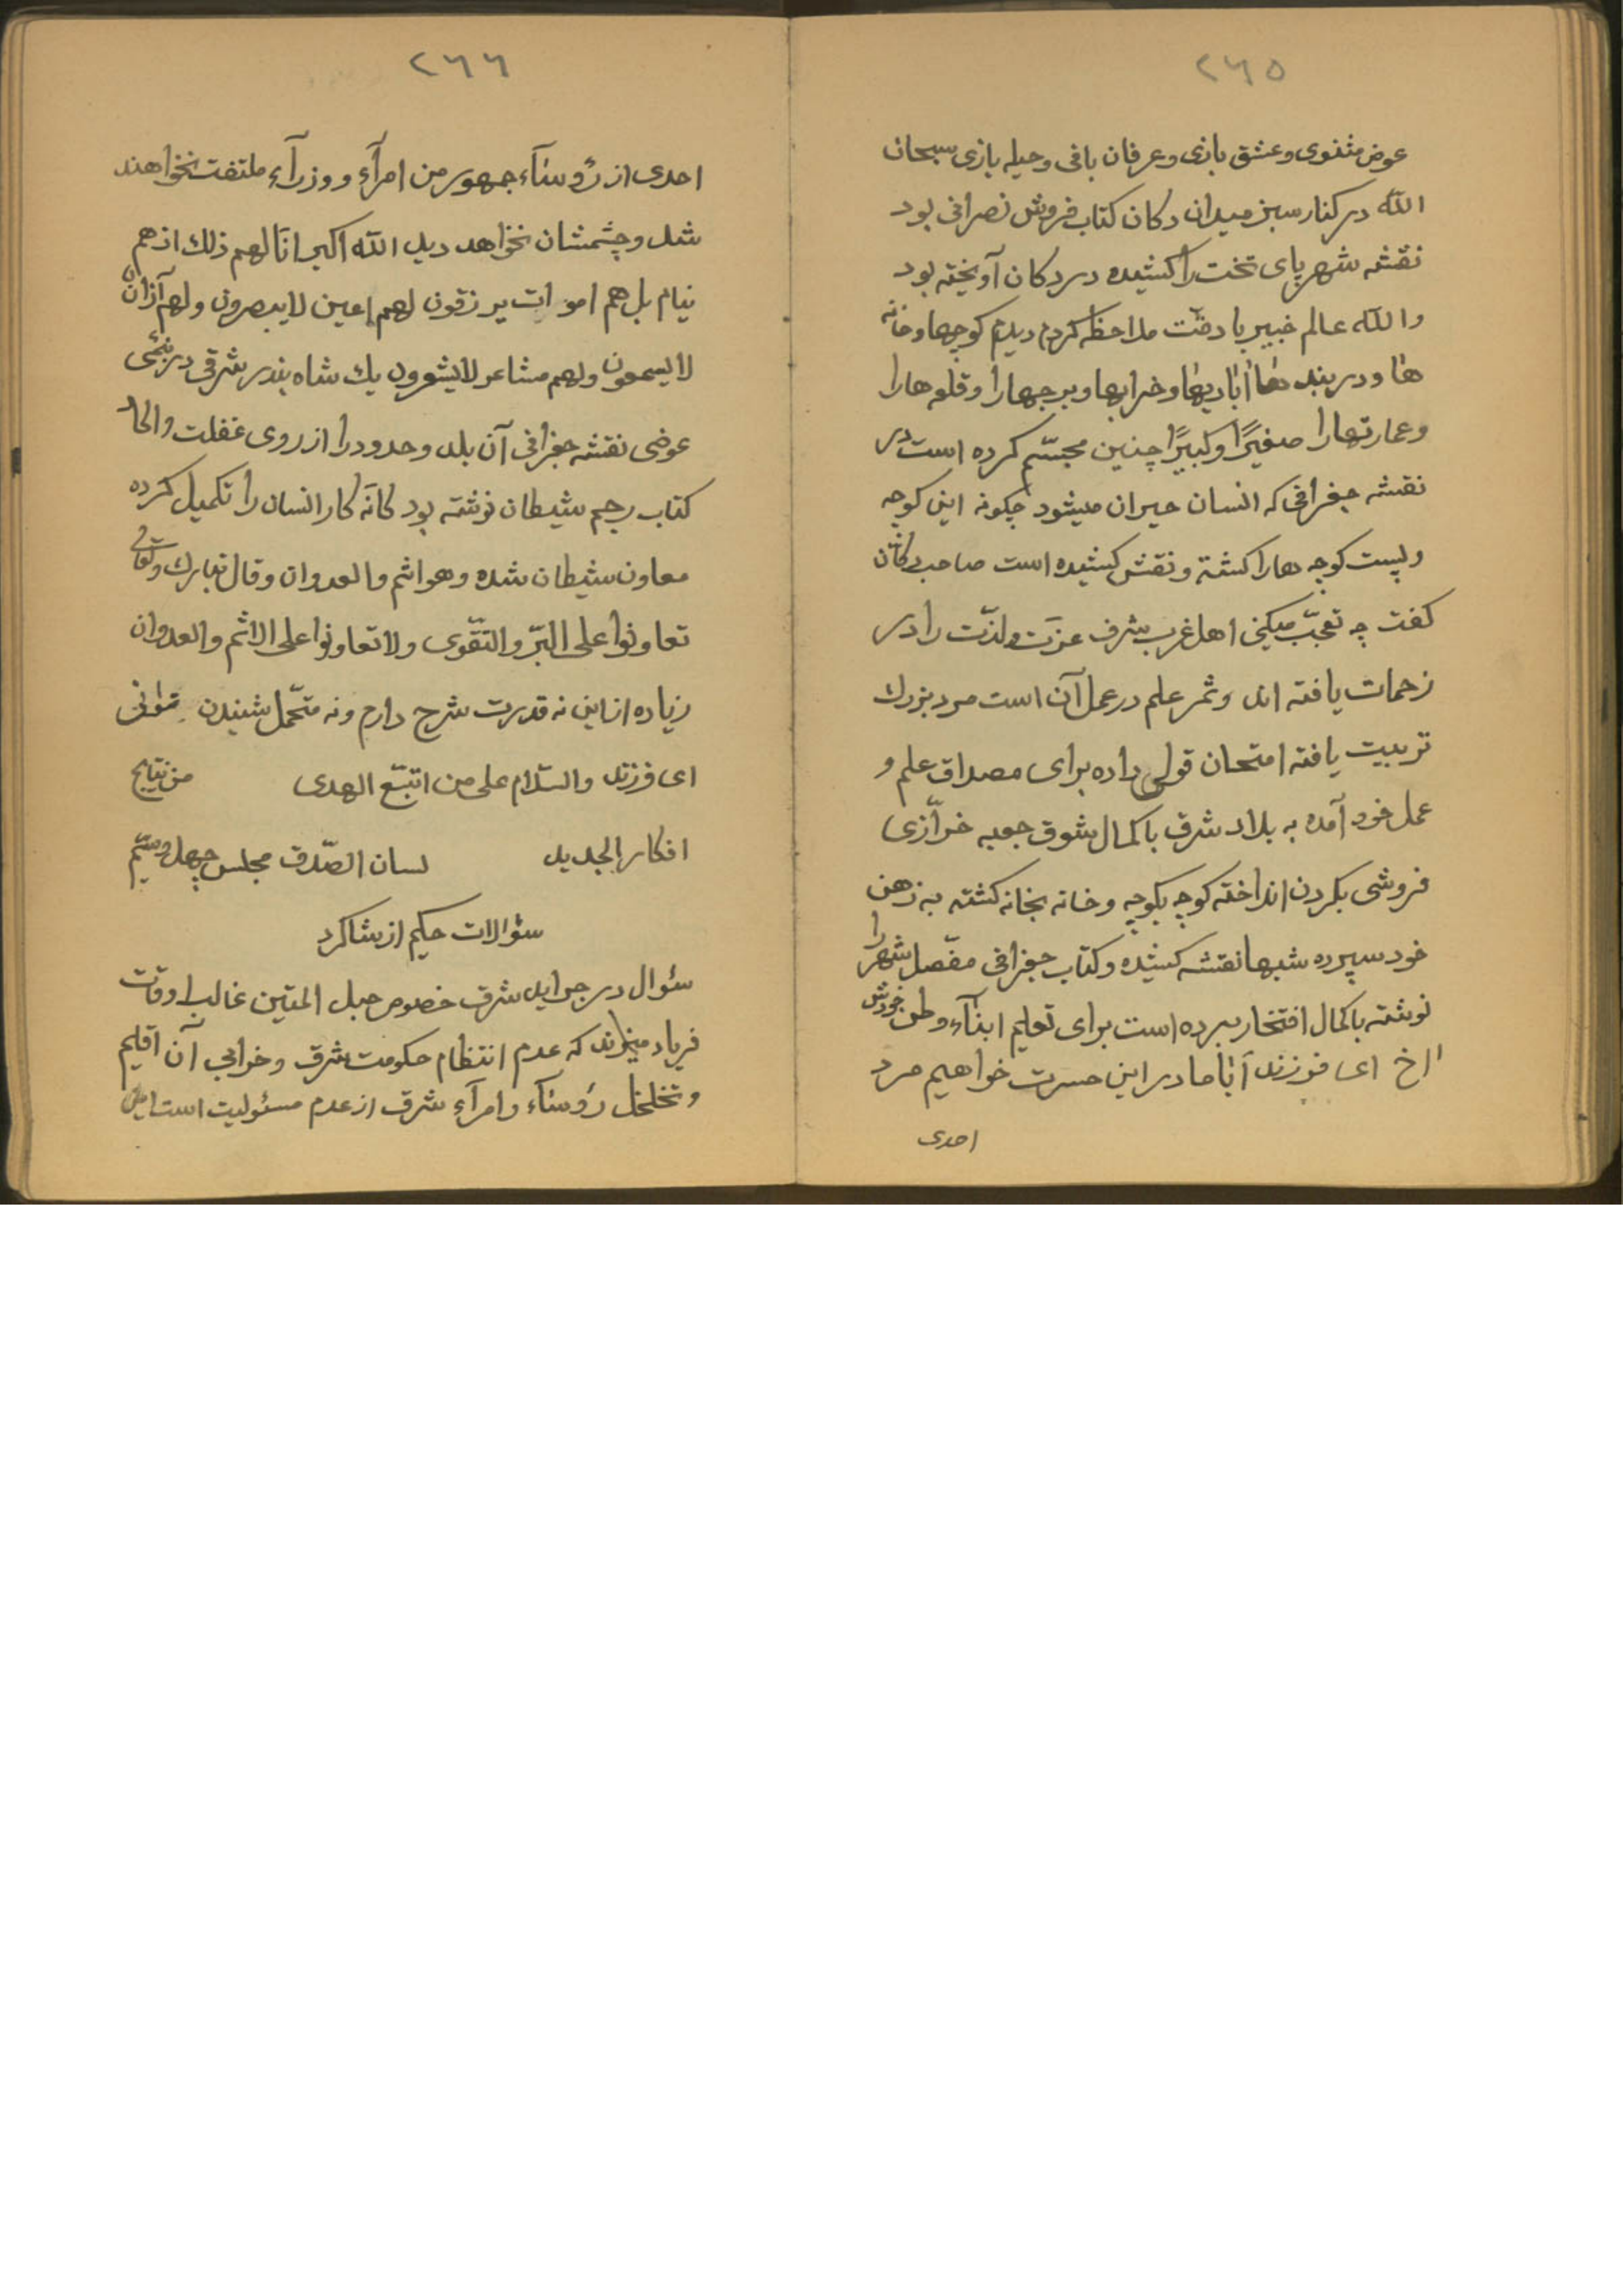 ٢٦٥
عوض مثنوی و عشق بازی و عرفان بافی و حیله بازی سبحان
الله در کنار سبز میدان دکان کتاب فروش نصرانی بود
نقشه شهر پای تخت را کشیده در دکان آویخته بود
والله عالم خبیر با دقّت ملاحظه کردم دیدم کوچها و خانه
ها و دربند ها آبادیها و خرابها و برجها را و قلعه ها را
و عمارتها را صغیرًا و کبیرًا چنین مجسّم کرده است در
نقشه جغرافی که انسان حیران میشود چکونه این کوچه
و پست کوچه ها را کشته و نقش کشیده است صاحب دکان
کفت چه تعجّب میکنی اهل غرب شرف عزت و لذّت را در
زحمات یافته اند و ثمر علم در عمل آن است مرد بزرك
تربیت یافته امتحان قولی داده برای مصداق علم و
عمل خود آمده به بلاد شرق با کمال شوق جعبه خرّازی
فروشی بکردن انداخته کوچه بکوچه و خانه بخانه کشته به ذهن
خود سپرده شبها نقشه کشیده و کتاب جغرافی مفصّل شهر را
نوشته با کمال افتخار برده است برای تعلیم ابنآء وطن خودش
اخ ای فرزند آیا ما در این حسرت خواهیم مرد
احدی
٢٦٦
احدی از رؤسآء جمهور من امرآء و وزرآء ملتفت نخواهند
شد و چشمشان نخواهد دید الله اکبر انّا لهم ذلك اذ هم
نیام بل هم اموات یرزقون لهم اعین لا یبصرون و لهم آذان
لا یسمعون و لهم مشاعر لا یشعرون یك شاه بندر شرقی در
عوض نقشه جغرافی آن بلد و حدود را از روی غفلت و الحاد
کتاب رجم شیطان نوشته بود کانّه کار انسان را تکمیل کرده
معاون شیطان شده و هو اثم و العدوان و قال تبارك و تعالی
تعاونوا علی البرّ و التقّوی و لا تعاونوا علی الاثم و العدوان
زیاده از این نه قدرت شرح دارم و نه متحّمل شنیدن توانی
ای فرزند و السّلام علی من اتبّع الهدی من نتایج
افکار الجدید لسان الصّدق مجلس چهل و سیّم
سؤالات حکیم از شاکرد
سئوال در جراید شرق خصوص حبل المتین غالب اوقات
فریاد میزند که عدم انتظام حکومت شرق و خرابی آن اقلیم
و تخلخل رؤسآء و امرآء شرق از عدم مسئولیت است